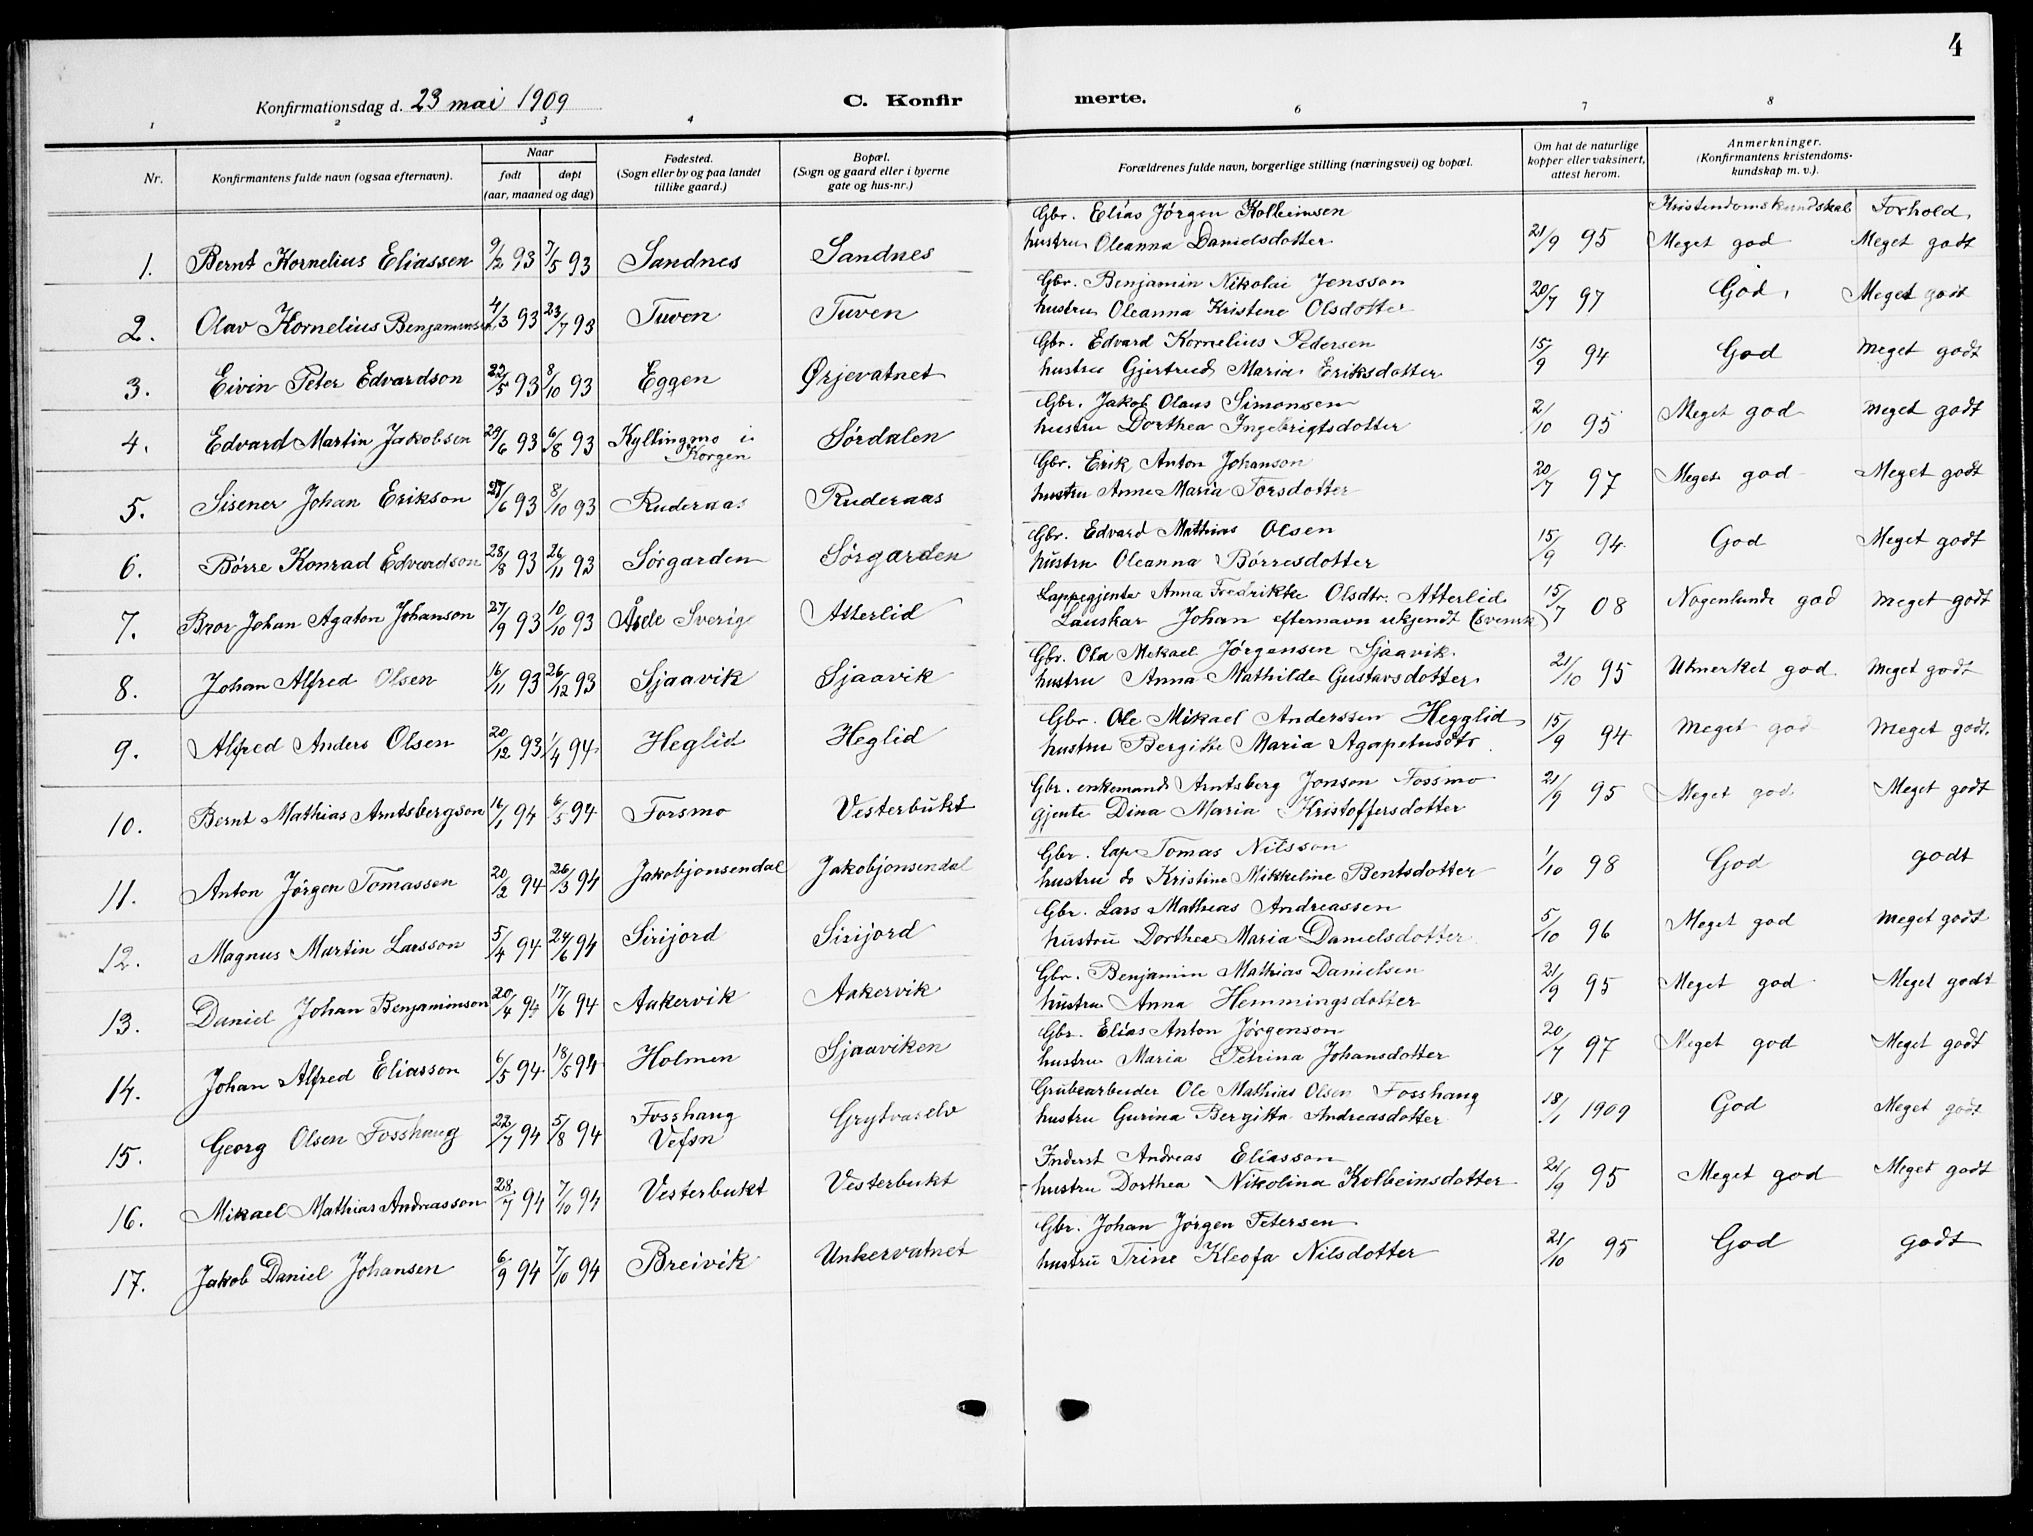 4
Konfirmationsdag d. 23 mai 1909
C. Konfir
merte.
1 2 3 4 6 7 8
Nr.
Konfirmantens fulde navn (ogsaa efternavn).
Naar
født døpt
(aar, maaned og dag)
Fødested.
(Sogn eller by og paa landet
tillike gaard.)
Bopæl.
(Sogn og gaard eller i byerne
gate og hus-nr.)
Forældrenes fulde navn, borgerlige stilling (næringsvei) og bopæl.
Om hat de naturlige
kopper eller vaksinert,
attest herom.
Anmerkninger.
(Konfirmantens kristendoms-
kundskap m. v.).
Kristendomskundskab Forhold.
Gbr. Elias Jørgen Kolbeinsen
1. Bernt Kornelius Eliassen 9/2 93 7/5 93 Sandnes Sandnes hustru Oleanna Danielsdotter 21/9 95 Meget god Meget godt
Gbr. Benjamin Nikolai Jensson
2. Olav Kornelius Benjaminsen 4/3 93 23/7 93 Tuven Tuven hustru Oleanna Kristene Olsdotter 20/7 97 God. Meget godt
Gbr. Edvard Kornelius Pedersen
3. Eivin Peter Edvardson 22/5 93 8/10 93 Eggen Ørjevatnet hustru Gjertrud Maria Eriksdotter 15/9 94 God Meget godt
Gbr. Jakob Olaus Simonsen
4. Edvard Martin Jakobsen 29/6 93 6/8 93 Kyllingmo i Korgen Sørdalen hustru Dorthea Ingebrigtsdotter 2/10 95 Meget god Meget godt
Gbr. Erik Anton Johanson
5. Sisener Johan Erikson 27/6 93 8/10 93 Ruderaas Ruderaas hustru Anne Maria Torsdotter 20/7 97 Meget god Meget godt
Gbr. Edvard Mathias Olsen
6. Børre Konrad Edvardson 28/8 93 26/11 93 Sørgarden Sørgarden hustru Oleanna Børresdotter 15/9 94 God Meget godt
Lappegjente Anna Fredrikke Olsdtr. Atterlid
7. Bror Johan Agaton Johanson 27/9 93 10/10 93 Åsele Sverig Atterlid Lauskar Johan efternavn ukjendt (svensk) 15/7 08 Nogenlunde god Meget godt
Gbr. Ola Mekael Jørgensen Sjaavik.
8. Johan Alfred Olsen 16/11 93 26/12 93 Sjaavik Sjaavik hustru Anna Mathilde Gustavsdotter 21/10 95 Utmerket god. Meget godt
Gbr. Ole Mikael Anderssen Hegglid
9. Alfred Anders Olsen 20/12 93 1/4 94 Heglid Heglid hustru Bergitte Maria Agapetusdtr 15/9 94 Meget god Meget godt.
Gbr. enkemand Arntsberg Jonson Fossmo
10. Bernt Mathias Arntsbergson 16/1 94 6/5 94 Forsmo Vesterbukt gjente Dina Maria Kristoffersdotter 21/9 95 Meget god Meget godt
Gbr. lap Tomas Nilsson
11. Anton Jørgen Tomassen 20/2 94 26/3 94 Jakobjonsendal Jakobjonsendal hustru do Kristine Mikkeline Bentsdotter 1/10 98 God godt
Gbr. Lars Mathias Andreassen
12. Magnus Martin Larsson 5/4 94 24/6 94 Sirijord Sirijord hustru Dorthea Maria Danielsdotter 5/10 96 Meget god Meget godt
Gbr. Benjamin Mathias Danielsen
13. Daniel Johan Benjaminson 20/4 94 17/6 94 Aakervik Aakervik hustru Anna Hemmingsdotter 21/9 95 Meget god Meget godt
Gbr. Elias Anton Jørgenson
14. Johan Alfred Eliasson 6/5 94 18/5 94 Holmen Sjaaviken hustru Maria Petrina Johansdotter 20/7 97 Meget god Meget godt
Grubearbeider Ole Mathias Olsen Fosshaug
15. Georg Olsen Fosshaug 22/7 94 5/8 94 Fosshaug Vefsn Grytvaselv hustru Gurina Bergitta Andreasdotter 18/1 1909 God Meget godt
Inderst Andreas Eliasson
16. Mikael Mathias Andreasson 28/7 94 7/10 94 Vesterbukt Vesterbukt hustru Dorthea Nikolina Kolbeinsdotter 21/9 95 Meget god Meget godt
Gbr. Johan Jørgen Petersen
17. Jakob Daniel Johansen 6/9 94 7/10 94 Breivik Unkervatnet hustru Trine Kleofa Nilsdotter 21/10 95 God godt